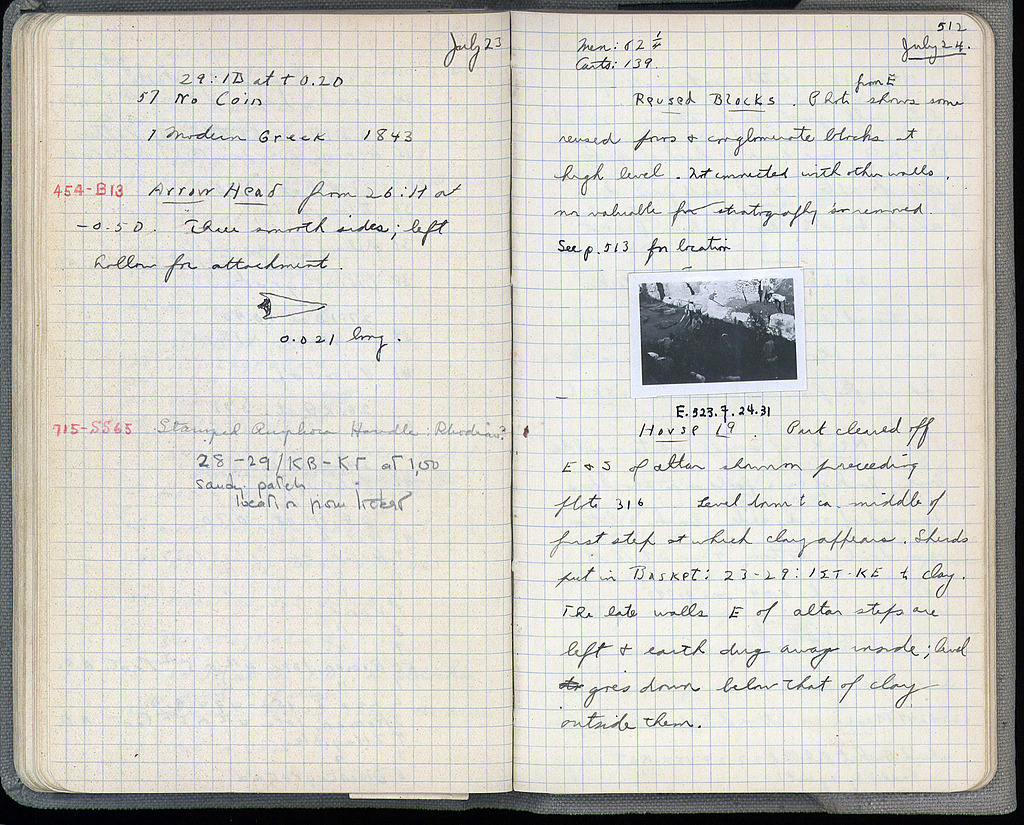 July 23
29:ΙΒ at + 0.20
57 No Coin
1 Modern Greek 1843
454-B13 Arrow Head from 26:Η at
-0.50. Three smooth sides; left
hollow for attachment.
0.021 long.
715-SS65 Stamped Amphora Handle: Rhodian?
28-29/ΚΒ-ΚΓ at 1,00
sandy patch
location from ticket
512
July 24.
Men: 62 1/2
Carts: 139.
from E
Reused Blocks. Photo shows some
reused poros & conglomerate blocks at
high level. Not connected with other walls,
nor valuable for stratography so removed.
See p. 513 for location
E.523.7.24.31
House 19. Part cleared off
E & S of altar shown on preceeding
photo 316 Level down to ca. middle of
first step at which clay appears. Sherds
put in Basket: 23-29: ΙΣΤ-ΚΕ to clay.
The late walls E of altar steps are
left & earth dug away inside; level
goes down below that of clay
outside them.